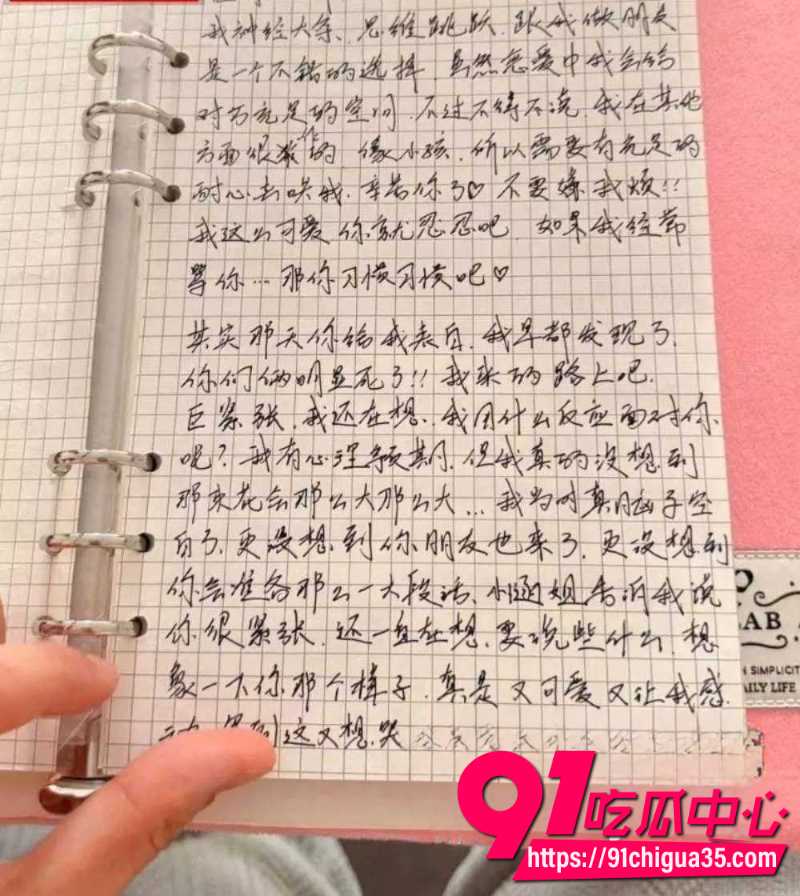 我神经大条、思维跳跃、跟我做朋友
是一个不错的选择，虽然恋爱中我会给
对方充足的空间，不过不得不说，我在其他
方面很 的 像小孩，所以需要有充足的
耐心去哄我，辛苦你了♡ 不要嫌我烦!!
我这么可爱 你就忍忍吧，如果我经常
骂你…那你习惯习惯吧♡
其实那天你给我表白，我早都发现了，
你们俩明显死了!! 我来的路上吧，
巨紧张，我还在想，我用什么反应面对你
呢? 我有心理预期，但我真的没想到
那束花会那么大那么大…我当时真脑子空
白了，更没想到你朋友也来了，更没想到
你会准备那么一大段话、小涵姐告诉我说
你很紧张，还一直在想，要说些什么，想
象一下你那个样子，真是又可爱又让我感
这又想哭
AB
SIMPLICIT
AILY LIFE
91吃瓜中心
https://91chigua35.com